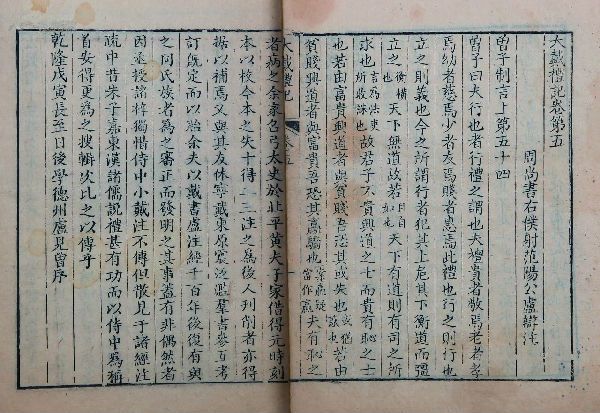 大戴禮記卷第五
周尚書右僕射范陽公盧辯注
曾子制言上第五十四
曾子曰夫行也者行禮之謂也夫禮貴者敬焉老者孝
焉幼者慈焉少者友焉賤者惠焉此禮也行之則行也
立之則義也今之所謂行者犯其上危其下衡道而彊
立之衡橫也天下無道故若天下有道則有司之所
求也故君子不貴興道之士而貴有恥之士
也若由富貴興道者與貧賤吾恐其或失也若由
貧賤興道者與富貴吾恐其驕也夫有恥之
大戴禮記 卷五
者病之余家召弓太史於北平黃夫子家借得元時刻
本以校今本之失十得二三注之爲後人刊削者亦得
據以補焉又與其友休寧戴東原震泛濫羣書參互考
訂既定而以貽余夫以戴書盧注經千百年後復有與
之同氏族者爲之審正而發明之其事蓋有非偶然者
因亟授諸梓獨惜侍中小戴注不傳但散見于諸經注
疏中昔朱子嘉東漢諸儒說禮甚有功而以侍中爲稱
首安得更爲之搜輯次比之以傳乎
乾隆戊寅長至日後學德州盧見曾序